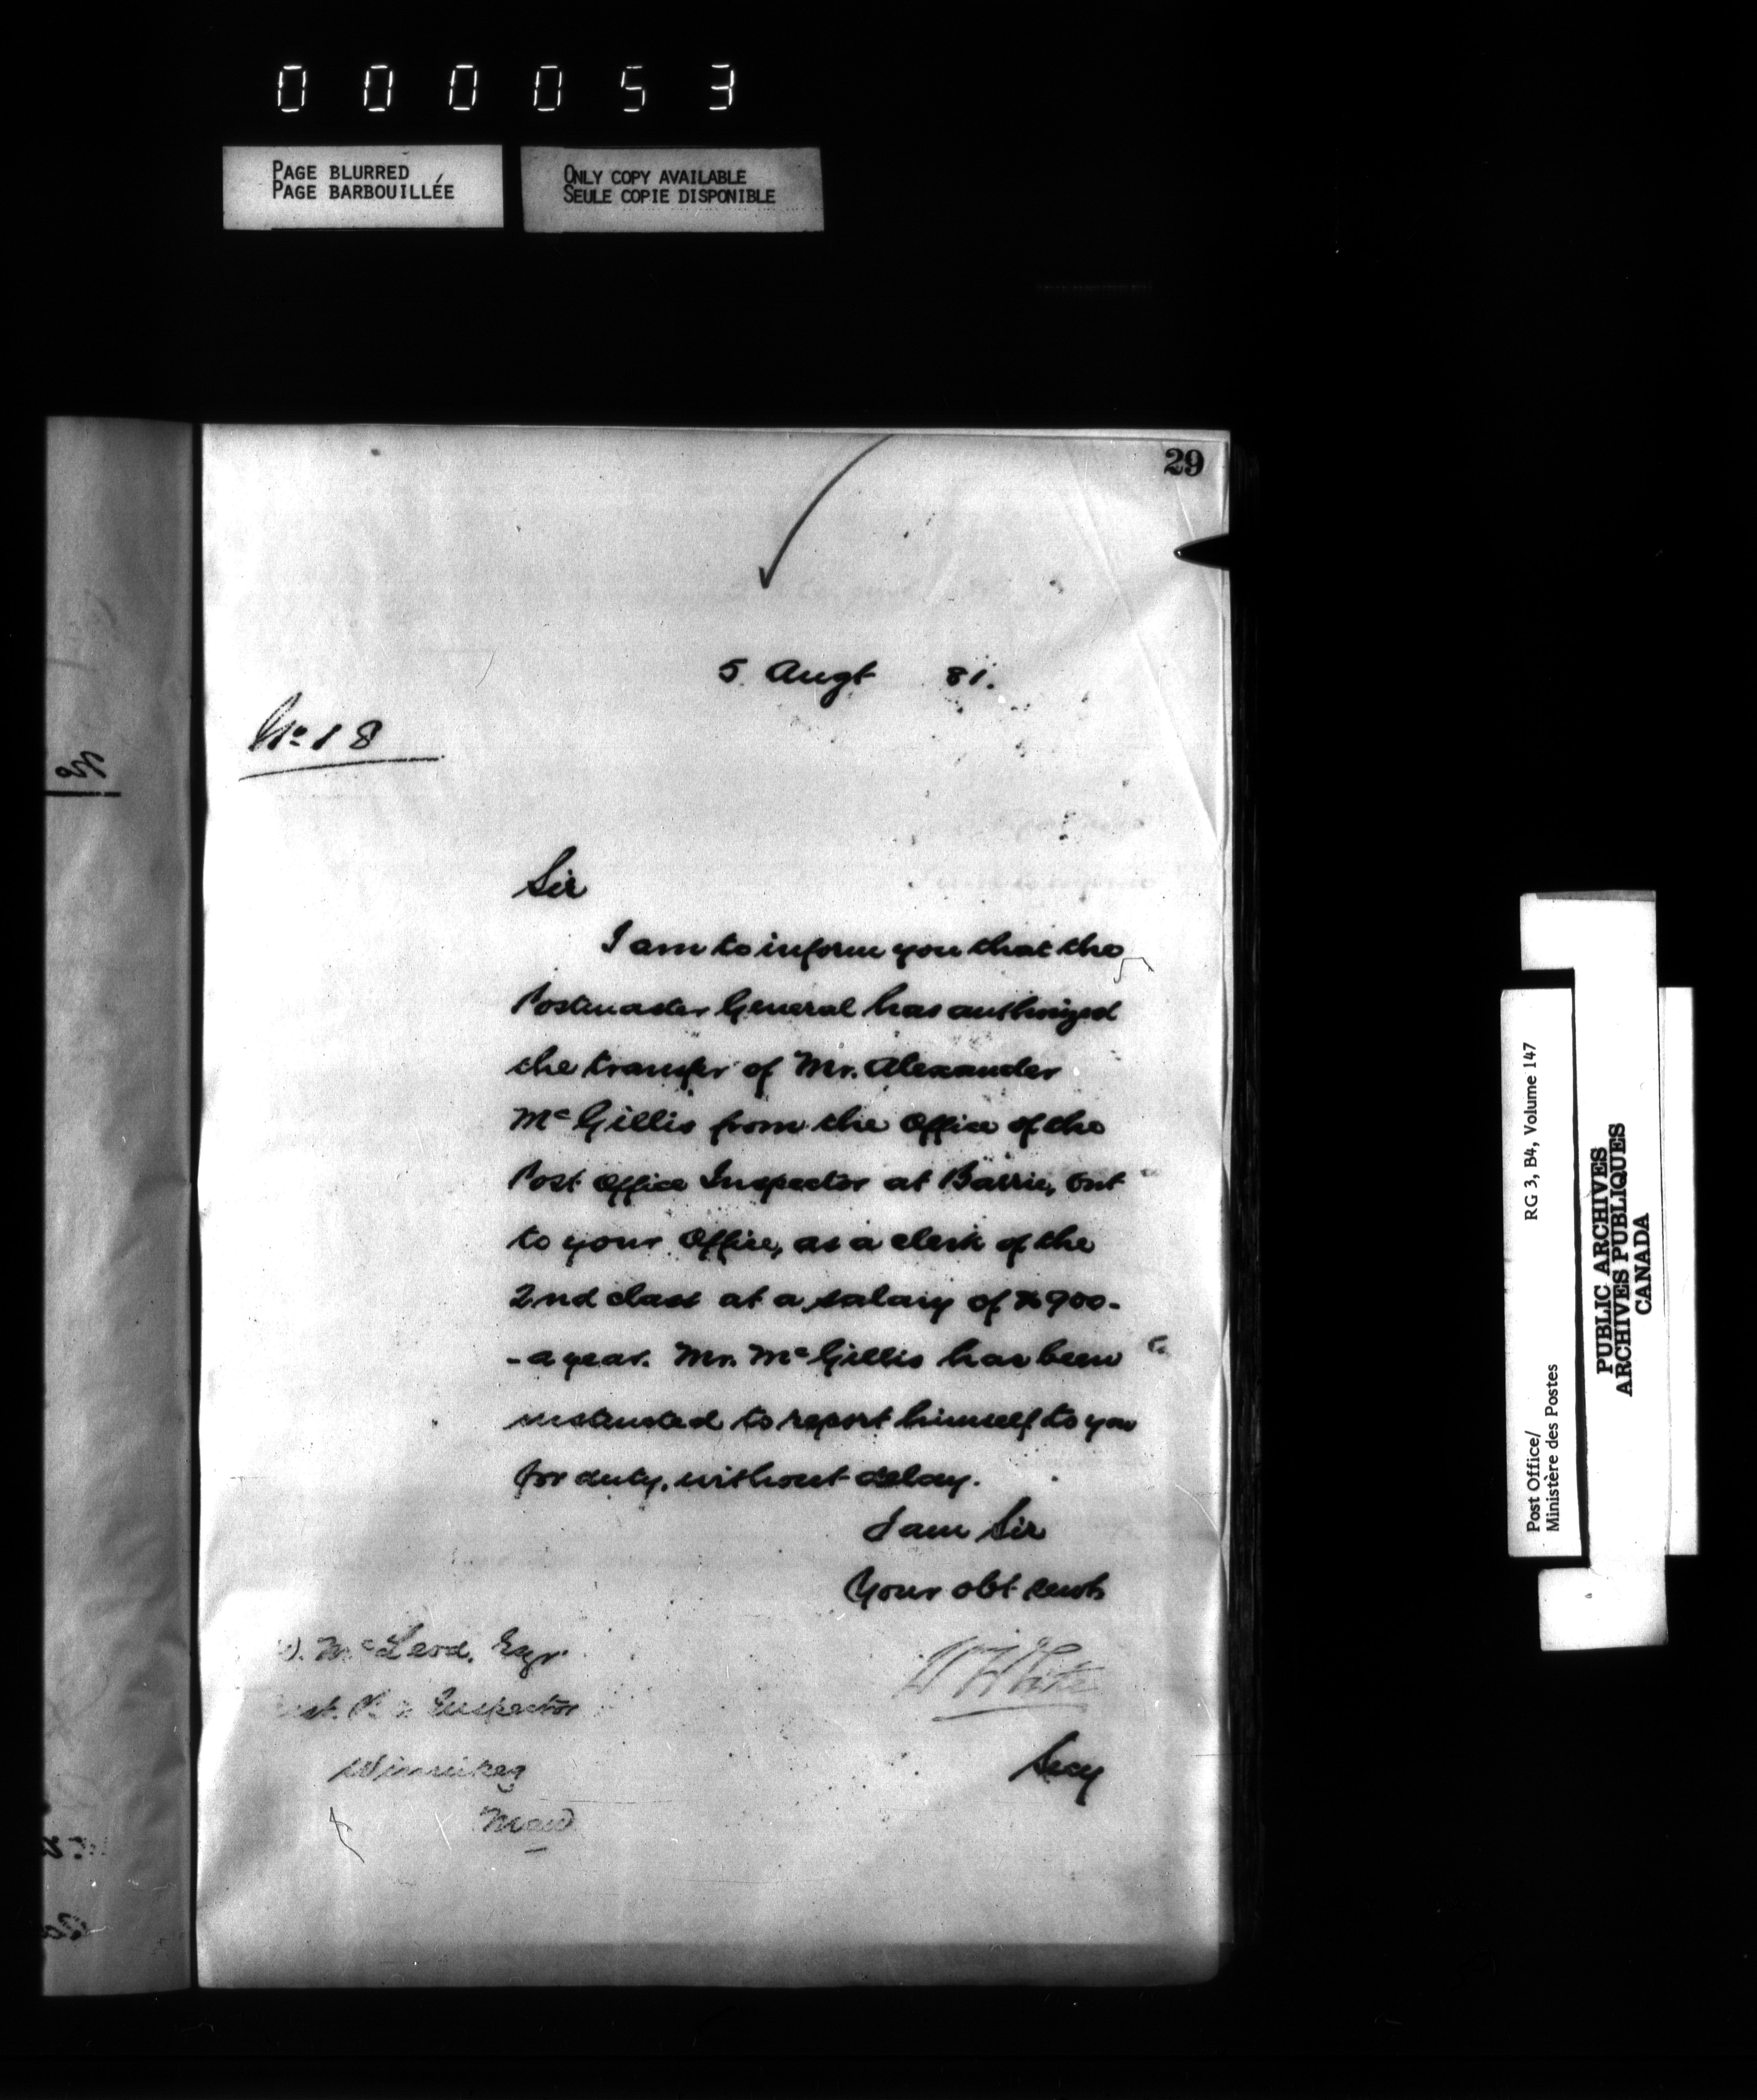 000053
PAGE BLURRED
PAGE BARBOUILLÉE
ONLY COPY AVAILABLE
SEULE COPIE DISPONIBLE
29
5 Augt 81.
No 18
Sir
I am to inform you that the
Postmaster General has authorized
the transfer of Mr. Alexander
McGillis from the Office of the
Post Office Inspector at Barrie, Ont
to your Office, as a clerk of the
2nd class at a salary of $900-
- a year. Mr. McGillis has been
instructed to report himself to you
for duty, without delay.
I am Sir
Your obt servt
W H White
Secy
McLeod, Esqr
Inspector
Winnipeg
Man
Post Office/
Ministère des Postes
RG 3, B4, Volume 147
PUBLIC ARCHIVES
ARCHIVES PUBLIQUES
CANADA